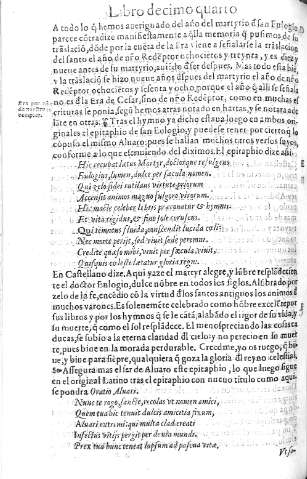 Libro decimo quarto
A todo lo q̃ hemos aueriguado del año del martyrio dsan Eulogio,
parece cõtradize manifiestamente aq̃lla memoria q̃ pusimos de su
traslaciõ, dõde por la cuẽta de la Era viene a señalarse la traslacion
del santo el año de nr̃o Redẽptor ochocientos y treynta, y es diez y
nueue antes de su martyrio, auiẽdo
y la traslaciõ se hizo nueue años despues del martyrio el año de nr̃o
Redẽptor ochociẽtos y sesenta y ocho, porque el año q̃ alli se señala
no es dla Era de Cesar, sino de nr̃o Redẽptor, como en muchas es
crituras se ponia, segũ hemos arras notado en hartas, y se notara ade
lãte en otras. Tras el hymno ya dicho estaua luego en ambos ori-
ginales el epitaphio de san Eulogio, y puedese tener por cierto q̃ lo
cõpuso el mismo Aluaro, pues se hallan muchos otros versos suyos,
conforme a lo que escriuiendo del diximos. El epitaphio dize assi.
Hic recubat latus Martyr, doctorque refulgens
Eulogius, lumen, dulce per sæcula nomen.
Qui zelo fidei rutilans virtute priorum
Accensit animos magno fulgore virorum.
Hic nocte celebrat libris precantur & hymnis
Et vita rigidus, & fine sole coruscus.
Qui temnens fluida, conscendit lucida cœli:
Nec morte perijt, sed viuit sede perenne.
Credite quæso mihi, viuit per sæcula, viuit,
Quisquis celeste lætatur gloria regni.
En Castellano dize. Aqui yaze el martyr alegre, y lũbre resplãdeciẽ
te el doctor Eulogio, dulce nõbre en todos los siglos. Alũbrado por
zelo de la fe, encẽdio cõ la virtud dlos santos antiguos los animos d
muchos varones. Es solenemẽte celebrado como hõbre excelẽte por
sus libros y por los hymnos q̃ se le cãtã, alabãdo el rigor de su vida, y
su muerte, q̃ como el sol resplãdece. El menospreciando las cosas ca
ducas, se subio a la eterna claridad dl cielo: y no perecio en su muer
te, pues biue en la morada perdurable. Creedme, yo os ruego, q̃ bi-
ue, y biue para siẽpre, qualquiera q̃ goza la gloria dl reyno celestial.
Assegura mas el ser de Aluaro este epitaphio, lo que luego sigue
en el original Latino tras el epitaphio con nueuo titulo como aqui
se pondra Oratio Aluari.
Nunc te rogo, sancte, recolas vt nomen amici,
Quem tua hic tenuit dulcis amicitia fixum,
Aluari extremi: qui multa clade creatus
Infectus vitijs pergit per deuia mundi.
Prex tua hunc teneat lapsum ad pascua vitæ,